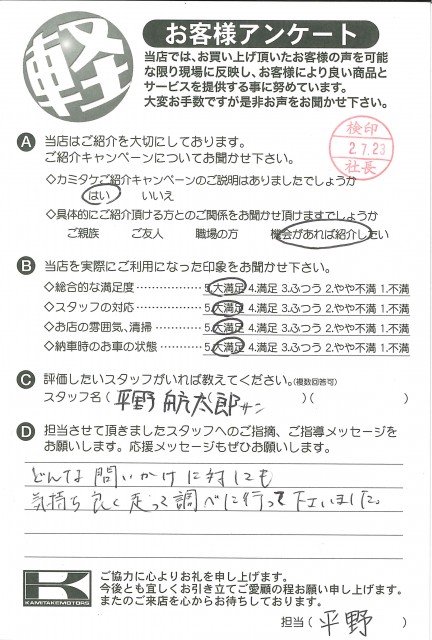 軽
お客様アンケート
当店では、お買い上げ頂いたお客様の声を可能
な限り現場に反映し、お客様により良い商品と
サービスを提供する事に努めています。
大変お手数ですが是非お声をお聞かせ下さい。
検印
2.7.23
社長
A 当店はご紹介を大切にしております。
ご紹介キャンペーンについてお聞かせ下さい。
◇カミタケご紹介キャンペーンのご説明はありましたでしょうか
はい いいえ
◇具体的にご紹介頂ける方とのご関係をお聞かせ頂けますでしょうか
ご親族 ご友人 職場の方 機会があれば紹介したい
B 当店を実際にご利用になった印象をお聞かせ下さい。
◇総合的な満足度 …………… 5.大満足 4.満足 3.ふつう 2.やや不満 1.不満
◇スタッフの対応 …………… 5.大満足 4.満足 3.ふつう 2.やや不満 1.不満
◇お店の雰囲気、清掃 ……… 5.大満足 4.満足 3.ふつう 2.やや不満 1.不満
◇納車時のお車の状態 ……… 5.大満足 4.満足 3.ふつう 2.やや不満 1.不満
C 評価したいスタッフがいれば教えてください。(複数回答可)
スタッフ名( 平野航太郎サン )( )
D 担当させて頂きましたスタッフへのご指摘、ご指導メッセージを
お願いします。応援メッセージもぜひお願いします。
どんな問いかけに対しても
気持ち良く走って調べに行って下さいました。
K
KAMITAKEMOTORS
ご協力に心よりお礼を申し上げます。
今後とも宜しくお引き立てご愛顧の程お願い申し上げます。
またのご来店を心からお待ちしております。
担当( 平野 )